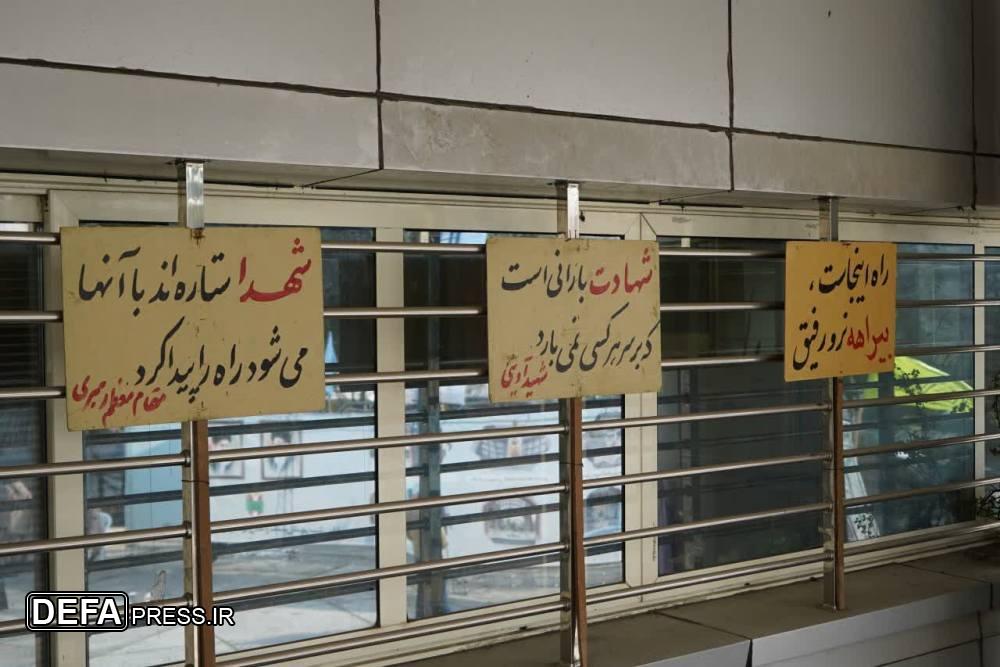 راه اینجاست،
بیراهه نرو رفیق
شهادت بارانی است
که بر سر هر کسی نمی بارد
شهید آوینی
شهدا ستاره اند با آنها
می شود راه را پیدا کرد
مقام معظم رهبری
DEFAPRESS.IR